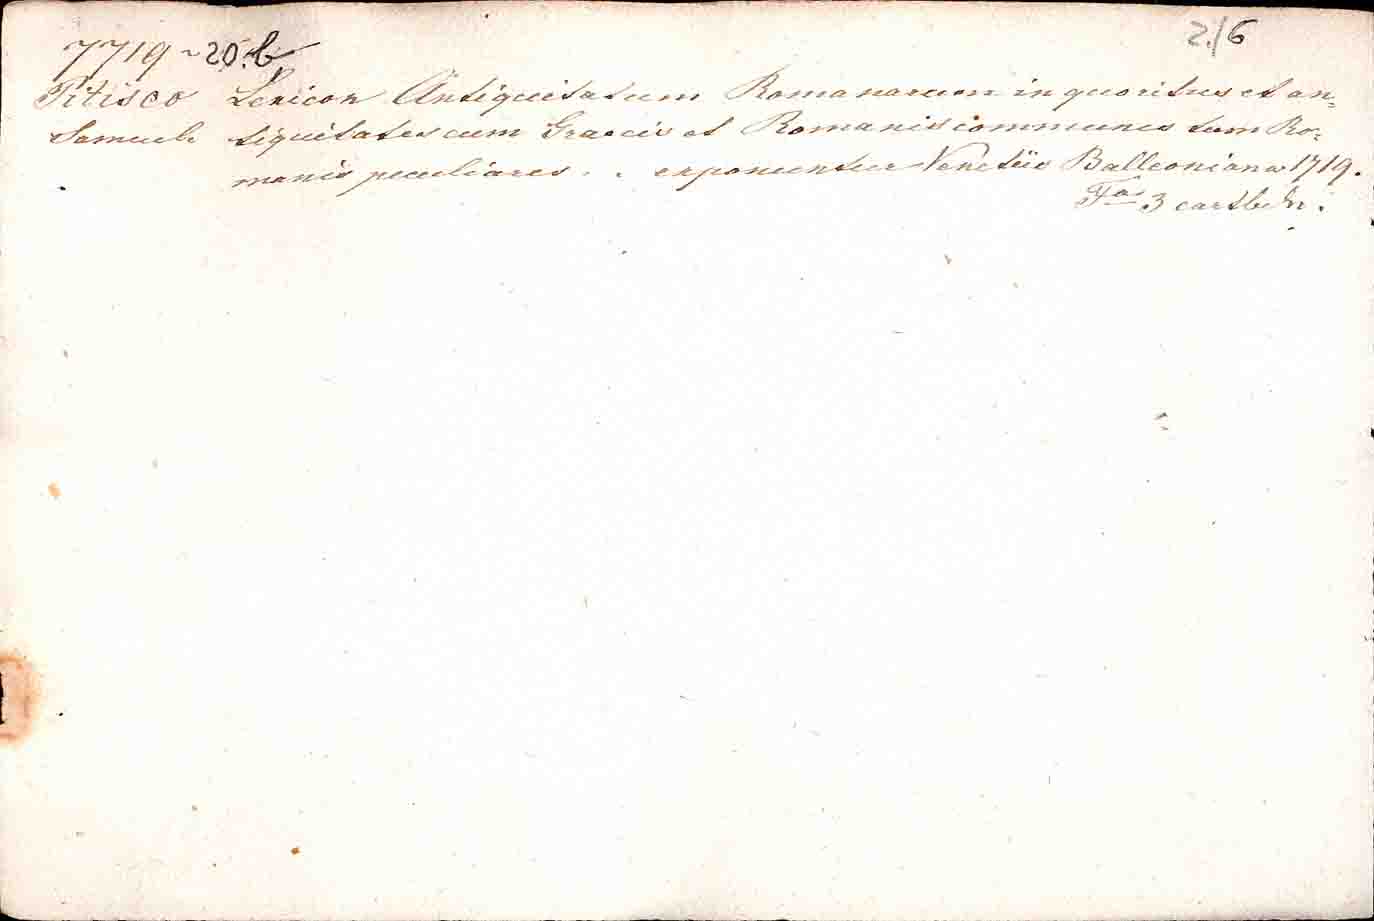 2./6
7719 ~ 20.b
Pitisco Lexicon Antiquitatum Romanarum in quo ritus et an=
Samuele tiquitates cum Graecis et Romanis communes tum Ro=
manis peculiares . . exponuntur Venetiis Balleoniana 1719.
Fº 3